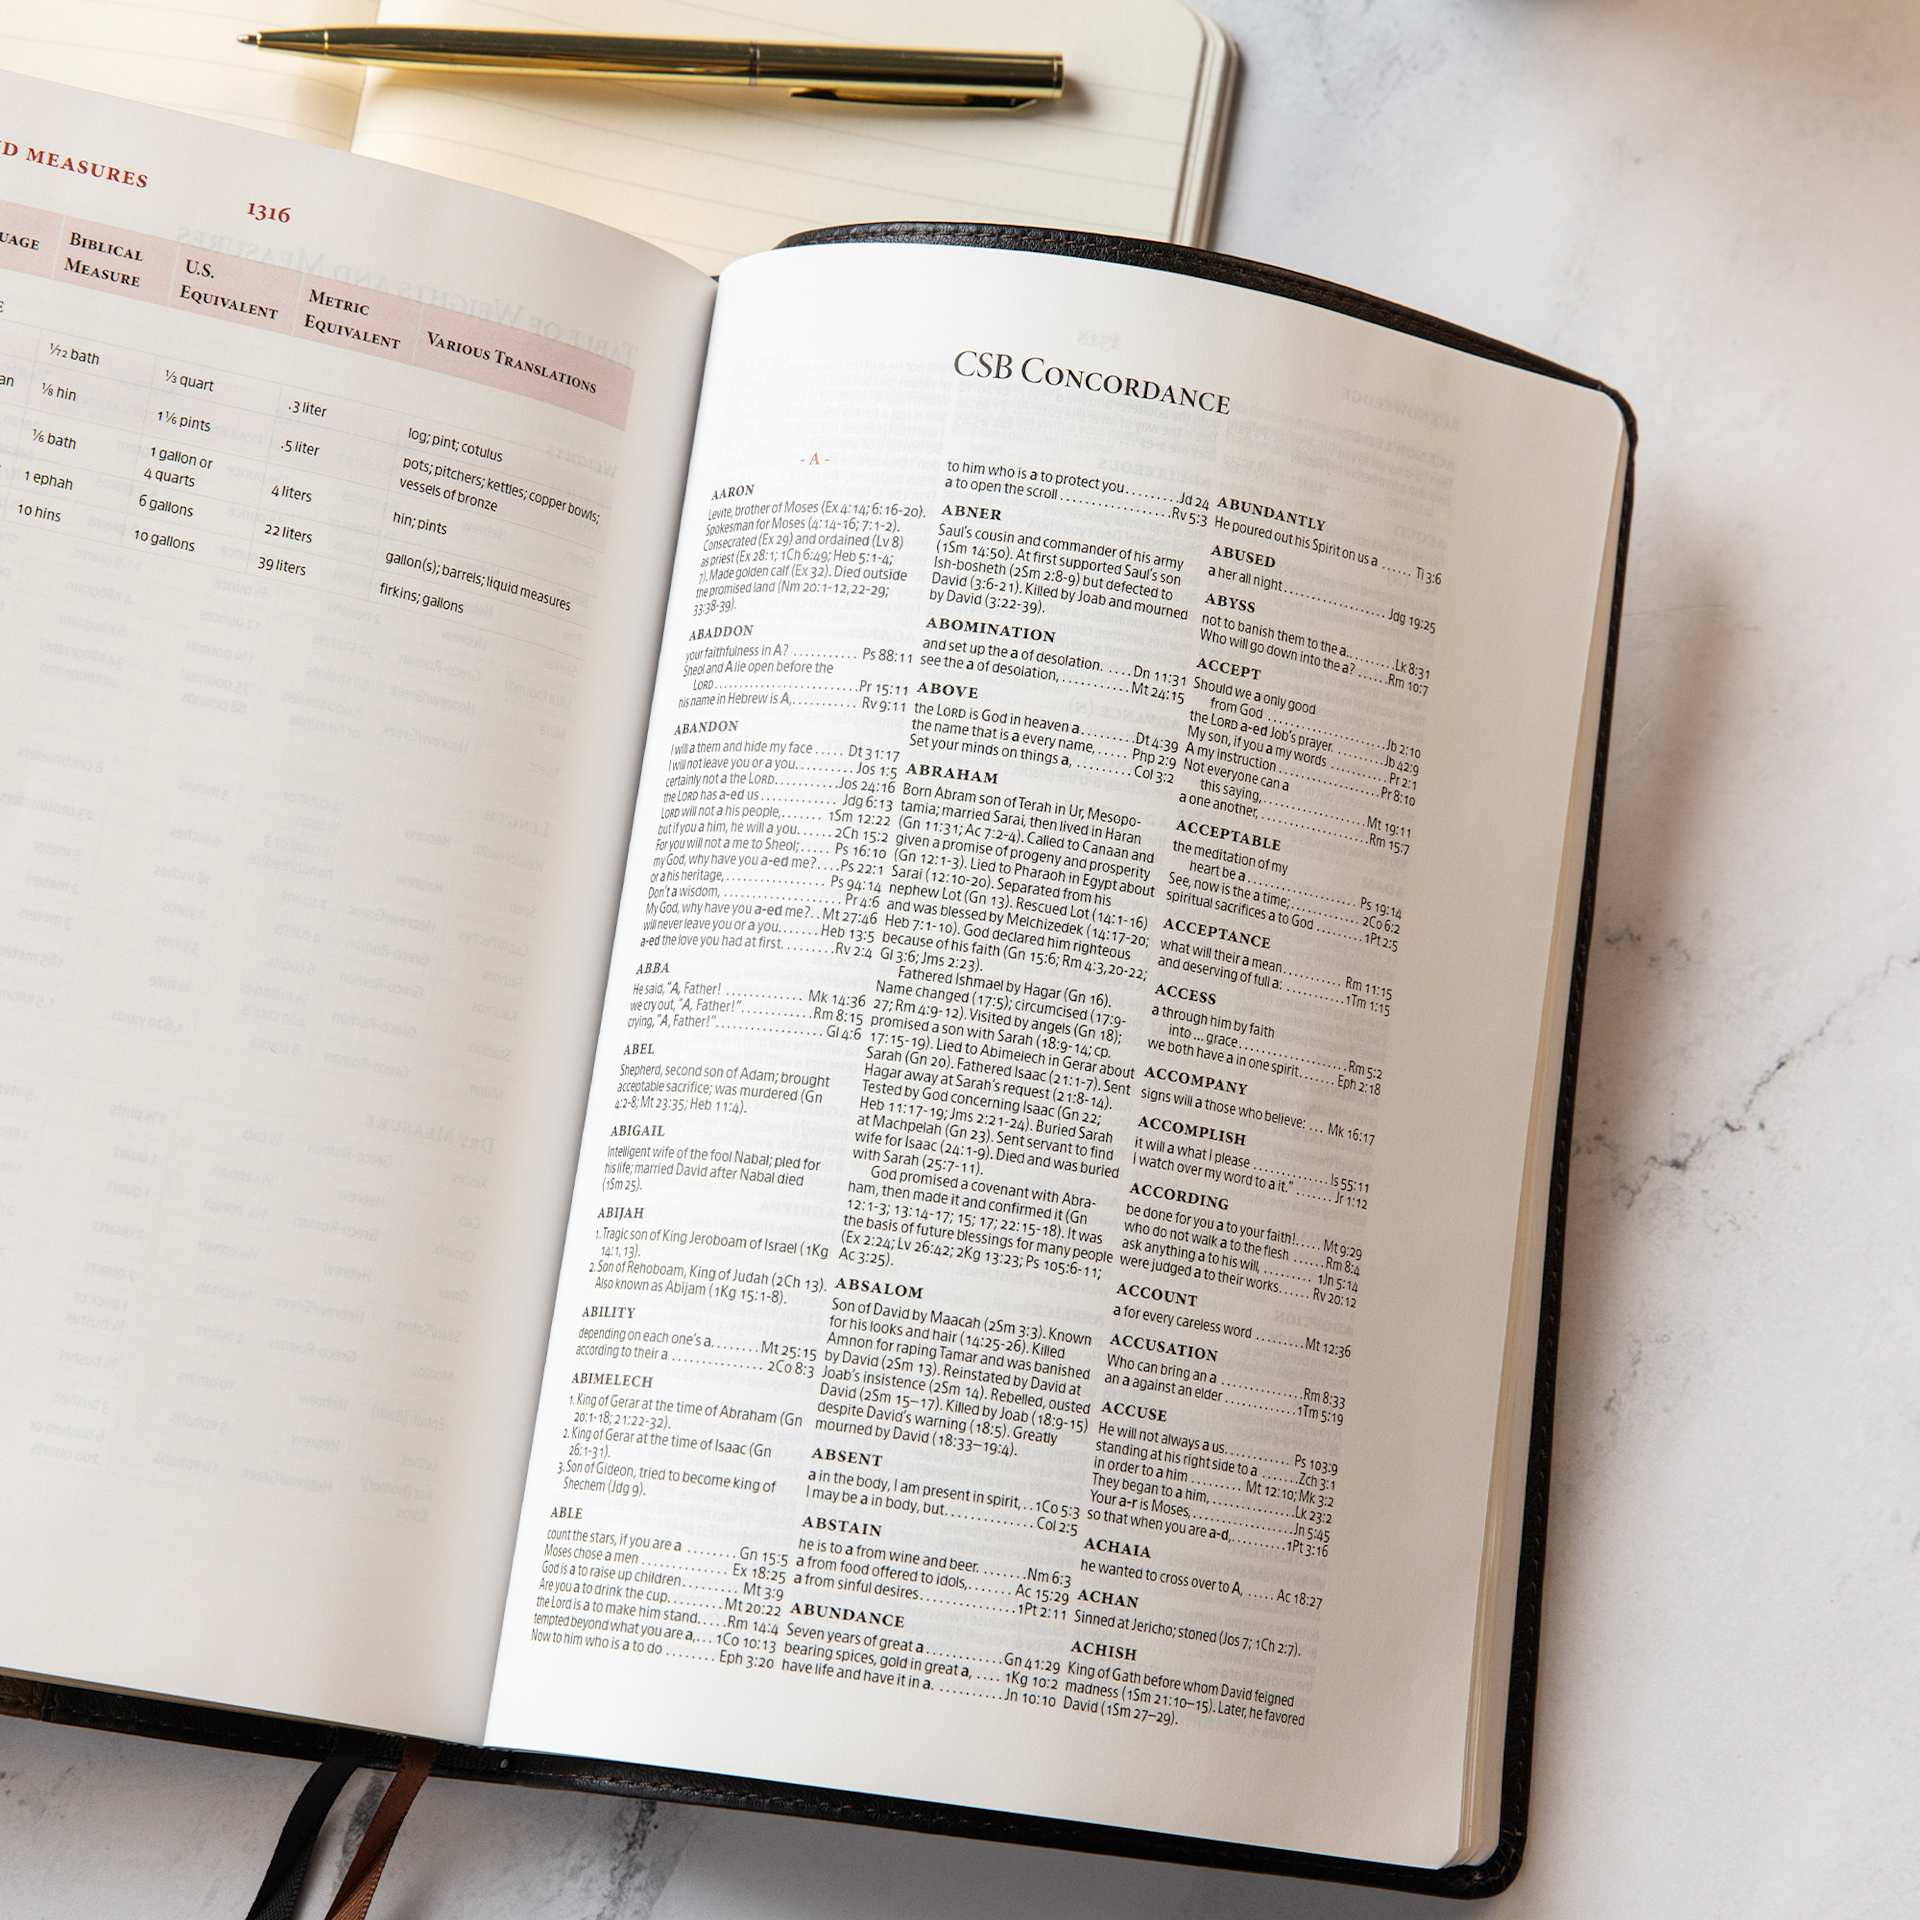 D MEASURES
1316
UAGE
BIBLICAL MEASURE
U.S. EQUIVALENT
METRIC EQUIVALENT
VARIOUS TRANSLATIONS
1/72 bath
1/3 quart
.3 liter
log; pint; cotulus
an
1/8 hin
1 1/6 pints
.5 liter
pots; pitchers; kettles; copper bowls;
vessels of bronze
1/6 bath
1 gallon or
4 quarts
4 liters
hin; pints
1 ephah
6 gallons
22 liters
gallon(s); barrels; liquid measures
10 hins
10 gallons
39 liters
firkins; gallons
CSB CONCORDANCE
- A -
AARON
Levite, brother of Moses (Ex 4:14; 6:16-20).
Spokesman for Moses (4:14-16; 7:1-2).
Consecrated (Ex 29) and ordained (Lv 8)
as priest (Ex 28:1; 1Ch 6:49; Heb 5:1-4;
7). Made golden calf (Ex 32). Died outside
the promised land (Nm 20:1-12,22-29;
33:38-39).
ABADDON
your faithfulness in A? ........... Ps 88:11
Sheol and A lie open before the
LORD.................. Pr 15:11
his name in Hebrew is A,......... Rv 9:11
ABANDON
I will a them and hide my face ..... Dt 31:17
I will not leave you or a you......... Jos 1:5
certainly not a the LORD............ Jos 24:16
the LORD has a-ed us ............. Jdg 6:13
LORD will not a his people,....... 1Sm 12:22
but if you a him, he will a you...... 2Ch 15:2
For you will not a me to Sheol;..... Ps 16:10
my God, why have you a-ed me?....Ps 22:1
or a his heritage,................ Ps 94:14
Don't a wisdom, ................. Pr 4:6
My God, why have you a-ed me?.. Mt 27:46
will never leave you or a you....... Heb 13:5
a-ed the love you had at first......... Rv 2:4
ABBA
He said, "A, Father! ............. Mk 14:36
we cry out, "A, Father!"........... Rm 8:15
crying, "A, Father!"................ Gl 4:6
ABEL
Shepherd, second son of Adam; brought
acceptable sacrifice; was murdered (Gn
4:2-8; Mt 23:35; Heb 11:4).
ABIGAIL
Intelligent wife of the fool Nabal; pled for
his life; married David after Nabal died
(1Sm 25).
ABIJAH
1. Tragic son of King Jeroboam of Israel (1Kg
14:1, 13).
2. Son of Rehoboam, King of Judah (2Ch 13).
Also known as Abijam (1Kg 15:1-8).
ABILITY
depending on each one's a........ Mt 25:15
according to their a ............. 2Co 8:3
ABIMELECH
1. King of Gerar at the time of Abraham (Gn
20:1-18; 21:22-32).
2. King of Gerar at the time of Isaac (Gn
26:1-31).
3. Son of Gideon, tried to become king of
Shechem (Jdg 9).
ABLE
count the stars, if you are a ........ Gn 15:5
Moses chose a men ............. Ex 18:25
God is a to raise up children......... Mt 3:9
Are you a to drink the cup......... Mt 20:22
the Lord is a to make him stand..... Rm 14:4
tempted beyond what you are a,... 1Co 10:13
Now to him who is a to do ........ Eph 3:20
to him who is a to protect you......... Jd 24
a to open the scroll ................ Rv 5:3
ABNER
Saul's cousin and commander of his army
(1Sm 14:50). At first supported Saul's son
Ish-bosheth (2Sm 2:8-9) but defected to
David (3:6-21). Killed by Joab and mourned
by David (3:22-39).
ABOMINATION
and set up the a of desolation. ..... Dn 11:31
see the a of desolation,........... Mt 24:15
ABOVE
the LORD is God in heaven a......... Dt 4:39
the name that is a every name, ..... Php 2:9
Set your minds on things a, ......... Col 3:2
ABRAHAM
Born Abram son of Terah in Ur, Mesopo-
tamia; married Sarai, then lived in Haran
(Gn 11:31; Ac 7:2-4). Called to Canaan and
given a promise of progeny and prosperity
(Gn 12:1-3). Lied to Pharaoh in Egypt about
Sarai (12:10-20). Separated from his
nephew Lot (Gn 13). Rescued Lot (14:1-16)
and was blessed by Melchizedek (14:17-20;
Heb 7:1-10). God declared him righteous
because of his faith (Gn 15:6; Rm 4:3,20-22;
Gl 3:6; Jms 2:23).
Fathered Ishmael by Hagar (Gn 16).
Name changed (17:5); circumcised (17:9-
27; Rm 4:9-12). Visited by angels (Gn 18);
promised a son with Sarah (18:9-14; cp.
17:15-19). Lied to Abimelech in Gerar about
Sarah (Gn 20). Fathered Isaac (21:1-7). Sent
Hagar away at Sarah's request (21:8-14).
Tested by God concerning Isaac (Gn 22;
Heb 11:17-19; Jms 2:21-24). Buried Sarah
at Machpelah (Gn 23). Sent servant to find
wife for Isaac (24:1-9). Died and was buried
with Sarah (25:7-11).
God promised a covenant with Abra-
ham, then made it and confirmed it (Gn
12:1-3; 13:14-17; 15; 17; 22:15-18). It was
the basis of future blessings for many people
(Ex 2:24; Lv 26:42; 2Kg 13:23; Ps 105:6-11;
Ac 3:25).
ABSALOM
Son of David by Maacah (2Sm 3:3). Known
for his looks and hair (14:25-26). Killed
Amnon for raping Tamar and was banished
by David (2Sm 13). Reinstated by David at
Joab's insistence (2Sm 14). Rebelled, ousted
David (2Sm 15–17). Killed by Joab (18:9-15)
despite David's warning (18:5). Greatly
mourned by David (18:33–19:4).
ABSENT
a in the body, I am present in spirit,.. 1Co 5:3
I may be a in body, but............. Col 2:5
ABSTAIN
he is to a from wine and beer........ Nm 6:3
a from food offered to idols,....... Ac 15:29
a from sinful desires.............. 1Pt 2:11
ABUNDANCE
Seven years of great a............ Gn 41:29
bearing spices, gold in great a, .... 1Kg 10:2
have life and have it in a........... Jn 10:10
ABUNDANTLY
He poured out his Spirit on us a ...... Ti 3:6
ABUSED
a her all night................. Jdg 19:25
ABYSS
not to banish them to the a.......... Lk 8:31
Who will go down into the a? ...... Rm 10:7
ACCEPT
Should we a only good
from God .................... Jb 2:10
the LORD a-ed Job's prayer. ........ Jb 42:9
My son, if you a my words .......... Pr 2:1
A my instruction ................ Pr 8:10
Not everyone can a
this saying,................... Mt 19:11
a one another, ................. Rm 15:7
ACCEPTABLE
the meditation of my
heart be a................... Ps 19:14
See, now is the a time;............ 2Co 6:2
spiritual sacrifices a to God ......... 1Pt 2:5
ACCEPTANCE
what will their a mean........... Rm 11:15
and deserving of full a: ........... 1Tm 1:15
ACCESS
a through him by faith
into ... grace................. Rm 5:2
we both have a in one spirit....... Eph 2:18
ACCOMPANY
signs will a those who believe: ... Mk 16:17
ACCOMPLISH
it will a what I please ............. Is 55:11
I watch over my word to a it." ....... Jr 1:12
ACCORDING
be done for you a to your faith!..... Mt 9:29
who do not walk a to the flesh ...... Rm 8:4
ask anything a to his will, ......... 1Jn 5:14
were judged a to their works...... Rv 20:12
ACCOUNT
a for every careless word ........ Mt 12:36
ACCUSATION
Who can bring an a ............. Rm 8:33
an a against an elder ............ 1Tm 5:19
ACCUSE
He will not always a us........... Ps 103:9
standing at his right side to a ....... Zch 3:1
in order to a him ........ Mt 12:10; Mk 3:2
They began to a him, ............. Lk 23:2
Your a-r is Moses,............... Jn 5:45
so that when you are a-d,......... 1Pt 3:16
ACHAIA
he wanted to cross over to A, ..... Ac 18:27
ACHAN
Sinned at Jericho; stoned (Jos 7; 1Ch 2:7).
ACHISH
King of Gath before whom David feigned
madness (1Sm 21:10–15). Later, he favored
David (1Sm 27–29).